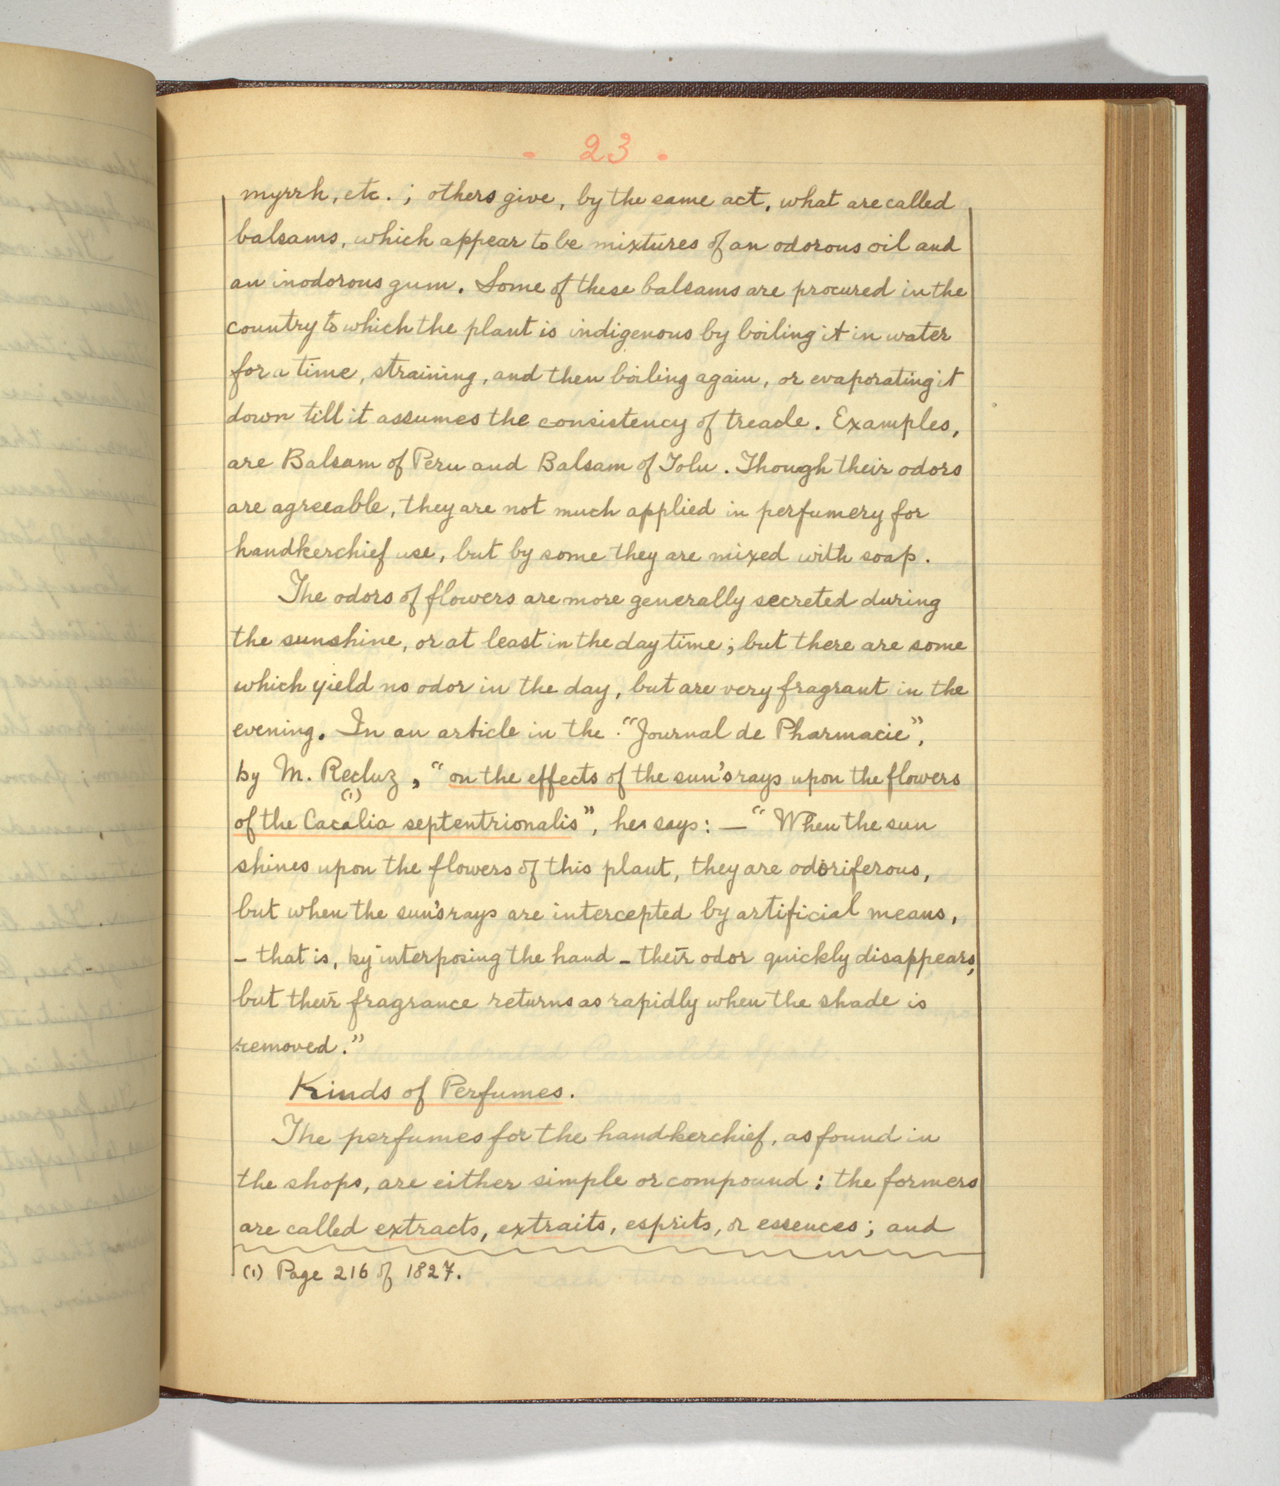 . 23 .
myrrh, etc. ; others give, by the same act, what are called
balsams, which appear to be mixtures of an odorous oil and
an inodorous gum. Some of these balsams are procured in the
country to which the plant is indigenous by boiling it in water
for a time, straining, and then boiling again, or evaporating it
down till it assumes the consistency of treacle. Examples,
are Balsam of Peru and Balsam of Tolu. Though their odors
are agreeable, they are not much applied in perfumery for
handkerchief use, but by some they are mixed with soap.
The odors of flowers are more generally secreted during
the sunshine, or at least in the day time; but there are some
which yield no odor in the day, but are very fragrant in the
evening. In an article in the "Journal de Pharmacie",
by M. Recluz, "on the effects of the sun's rays upon the flowers
(1)
of the Cacalia septentrionalis", he says: — "When the sun
shines upon the flowers of this plant, they are odoriferous,
but when the sun's rays are intercepted by artificial means,
– that is, by interposing the hand – their odor quickly disappears,
but their fragrance returns as rapidly when the shade is
removed."
Kinds of Perfumes.
The perfumes for the handkerchief, as found in
the shops, are either simple or compound: the formers
are called extracts, extraits, esprits, or essences; and
(1) Page 216 of 1827.